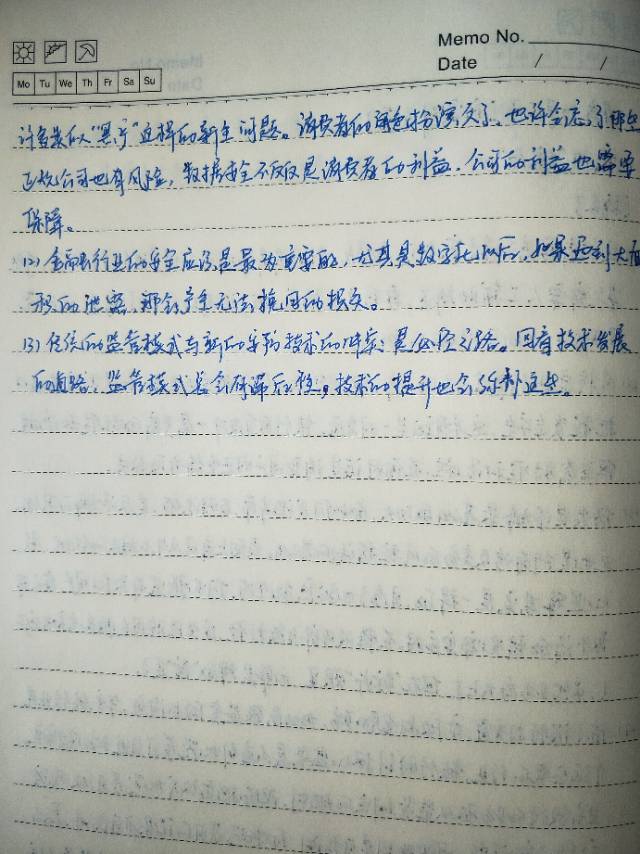 Memo No.
Date / /
Mo Tu We Th Fr Sa Su
许多类似"黑产"这样的新生问题。消费者的角色扮演久了,也许会忘了那些
正牌公司也有风险,数据安全不仅仅是消费者的利益,公司的利益也需要
保障。
(2) 金融行业的安全应该是最为重要的,尤其是数字化以后,如果遇到大面
积的泄密,那会产生无法挽回的损失。
(3) 传统的监管模式与新的金融技术的冲突:是必经之路。回看技术发展
的道路,监管模式总会有滞后性,技术的提升也会弥补这些。